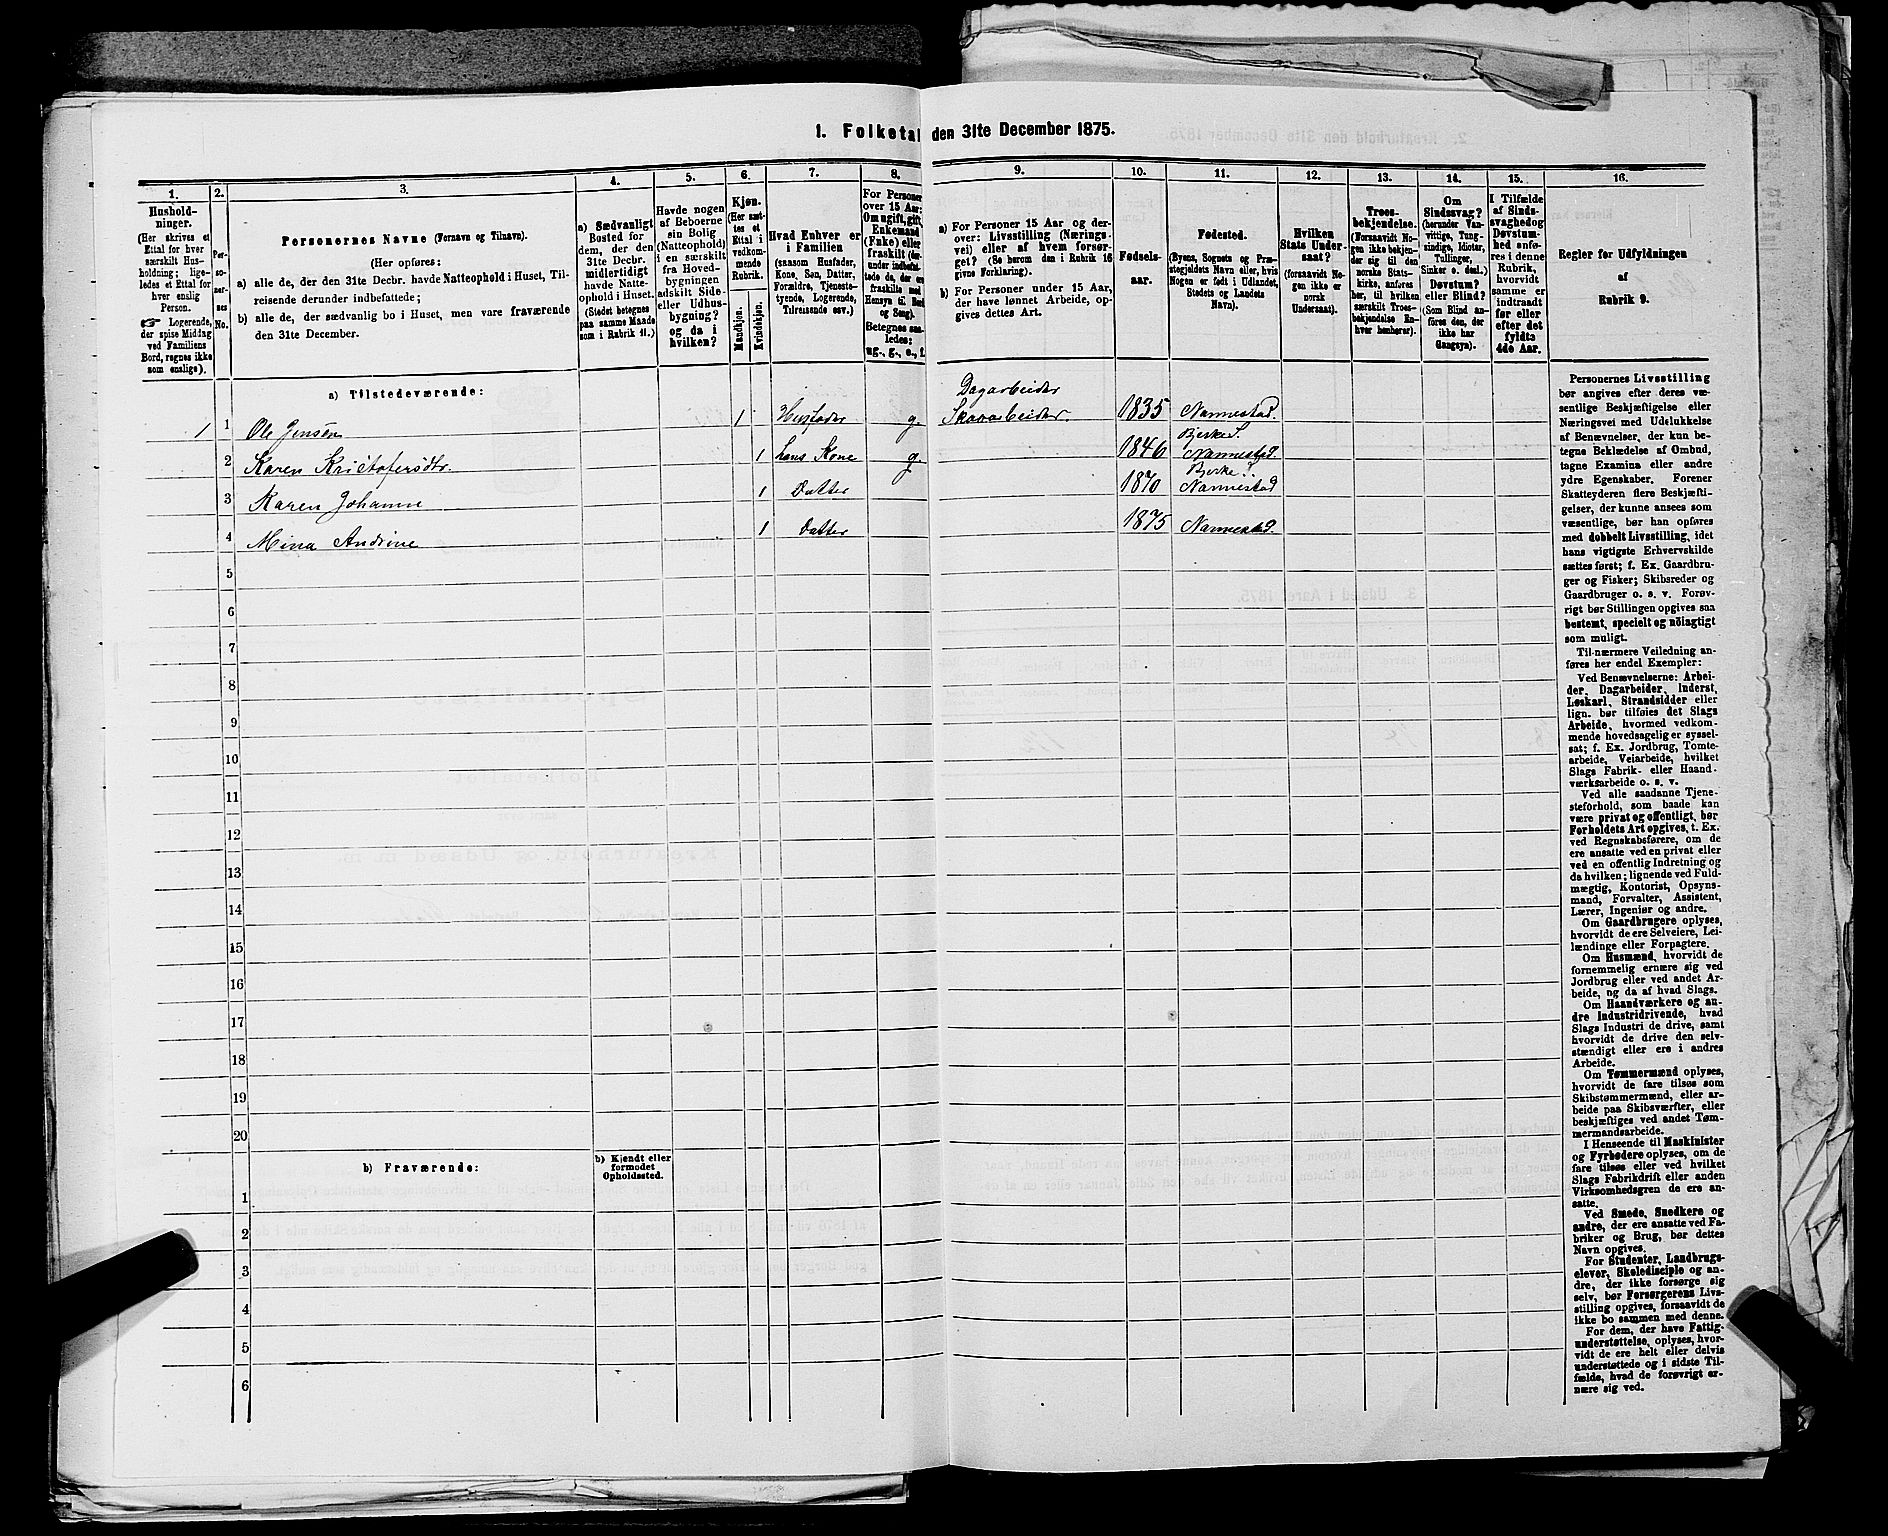 1. Folketal den 31te December 1875.
1.
2.
3.
4.
5.
6.
7.
8.
9.
10.
11.
12.
13.
14.
15.
16.
Hushold-
ninger.
(Her skrives et
Ettal for hver
særskilt Hus-
holdning; lige-
ledes et Ettal for
hver enslig
Person.
Logerende,
der spise Middag
ved Familiens
Bord, regnes ikke
som enslige).
Per-
so-
ner-
nes
No.
Personernes Navne (Fornavn og Tilnavn).
(Her opføres:
a) alle de, der den 31te Decbr. havde Natteophold i Huset, Til-
reisende derunder indbefattede;
b) alle de, der sædvanlig bo i Huset, men vare fraværende
den 31te December.
a) Sædvanligt
Bosted for
dem, der den
31te Decbr.
midlertidigt
havde Natte-
ophold i Huset.
(Stedet betegnes
paa samme Maade
som i Rubrik 11.)
Havde nogen
af Beboerne
sin Bolig
(Natteophold)
i en særskilt
fra Hoved-
bygningen
adskilt Side-
eller Udhus-
bygning?
og da i
hvilken?
Kjøn.
(Her sæt-
tes et
Ettal i
vedkom-
mende
Rubrik.
Mandkjøn.
Kvindekjøn.
Hvad Enhver er
i Familien
(saasom Husfader,
Kone, Søn, Datter,
Forældre, Tjeneste-
tyende, Logerende,
Tilreisende osv.)
For Personer
over 15 Aar:
Om ugift, gift,
Enkemand
(Enke) eller
fraskilt
Betegnes saa-
ledes:
ug., g., e., f.
a) For Personer 15 Aar og der-
over: Livsstilling (Nærings-
vei) eller af hvem forsør-
get? (Se herom den i Rubrik 16
givne Forklaring).
b) For Personer under 15 Aar,
der have lønnet Arbeide, op-
gives dettes Art.
Fødsels-
aar.
Fødested.
(Byens, Sognets og Præ-
stegjeldets Navn eller, hvis
Nogen er født i Udlandet,
Stedets og Landets
Navn).
Hvilken
Stats Under-
saat?
(forsaavidt No-
gen ikke er
norsk
Undersaat).
Troes-
bekjendelse.
(Forsaavidt No-
gen ikke bekjen-
der sig til den
norske Stats-
kirke, anføres
her, til hvilken
særskilt Troes-
bekjendelse En-
hver henhører).
Om
Sindssvag?
(herunder Van-
vittige, Tung-
sindige, Idioter,
Tullinger,
Sinker o. desl.)
Døvstum?
eller Blind?
(Som Blind an-
føres den, der
ikke har
Gangsyn).
I Tilfælde
af Sinds-
svaghed og
Døvstum-
hed anfø-
res i denne
Rubrik,
hvorvidt
samme er
indtraadt
før eller
efter det
fyldte
4de Aar.
Regler for Udfyldningen
af
Rubrik 9.
a) Tilstedeværende:
Dagarbeider
1 1 Ole Jensen 1 Husfader g. Skovarbeider 1835 Nannestad.
Bjerke S.
2 Karen Kristofersdtr. 1 hans Kone g 1846 Nannestad.
Bjerke S
3 Karen Johanne 1 Datter 1870 Nannestad
4 Mina Andrine 1 Datter 1875 Nannestad.
5
6
7
8
9
10
11
12
13
14
15
16
17
18
19
20
b) Fraværende:
b) Kjendt eller
formodet
Opholdssted.
1
2
3
4
5
6
Personernes Livsstilling
bør angives efter deres væ-
sentlige Beskjæftigelse eller
Næringsvei med Udelukkelse
af Benævnelser, der kun be-
tegne Beklædelse af Ombud,
tagne Examina eller andre
ydre Egenskaber. Forener
Skatteyderen flere Beskjæfti-
gelser, der kunne ansees som
væsentlige, bør han opføres
med dobbelt Livsstilling, idet
hans vigtigste Erhvervskilde
sættes først; f. Ex. Gaardbru-
ger og Fisker; Skibsreder og
Gaardbruger o. s. v. Forøv-
rigt bør Stillingen opgives saa
bestemt, specielt og nöiagtigt
som muligt.
Til nærmere Veiledning an-
føres her endel Exempler:
Ved Benævnelserne: Arbei-
der, Dagarbeider, Inderst,
Løskarl, Strandsidder eller
lign. bør tilføies det Slags
Arbeide, hvormed vedkom-
mende hovedsagelig er syssel-
sat; f. Ex. Jordbrug, Tomte-
arbeide, Veiarbeide, hvilket
Slags Fabrik- eller Haand-
værksarbeide o. s. v.
Ved alle saadanne Tjene-
steforhold, som baade kan
være privat og offentligt, bør
Forholdets Art opgives, t. Ex.
ved Regnskabsførere, om de
ere ansatte ved en privat eller
ved en offentlig Indretning og
da hvilken; lignende ved Fuld-
mægtig, Kontorist, Opsyns-
mand, Forvalter, Assistent,
Lærer, Ingeniør og andre.
Om Gaardbrugere oplyses,
hvorvidt de ere Selveiere, Lei-
lændinge eller Forpagtere.
Om Husmænd, hvorvidt de
fornemmelig ernære sig ved
Jordbrug eller ved andet Ar-
beide, og da af hvad Slags.
Om Haandværkere og an-
dre Industridrivende, hvad
Slags Industri de drive, samt
hvorvidt de drive den selv-
stændigt eller ere i andres
Arbeide.
Om Tømmermænd oplyses,
hvorvidt de fare tilsøs som
Skibstømmermænd, eller ar-
beide paa Skibsværfter, eller
beskjæftiges ved andet Tøm-
mermandsarbeide.
I Henseende til Maskinister
og Fyrbødere oplyses, om de
fare tilsøs eller ved hvilket
Slags Fabrikdrift eller anden
Virksomhedsgren de ere an-
satte.
Ved Smede, Snedkere og
andre, der ere ansatte ved Fa-
briker og Brug, bør dettes
Navn opgives.
For Studenter, Landbrugs-
elever, Skoledisciple og an-
dre, der ikke forsørge sig
selv, bør Forsørgerens Livs-
stilling opgives, forsaavidt de
ikke bo sammen med denne.
For dem, der have Fattig-
understøttelse, oplyses, hvor-
vidt de ere helt eller delvis
understøttede og i sidste Til-
fælde, hvad de forøvrigt er-
nære sig ved.